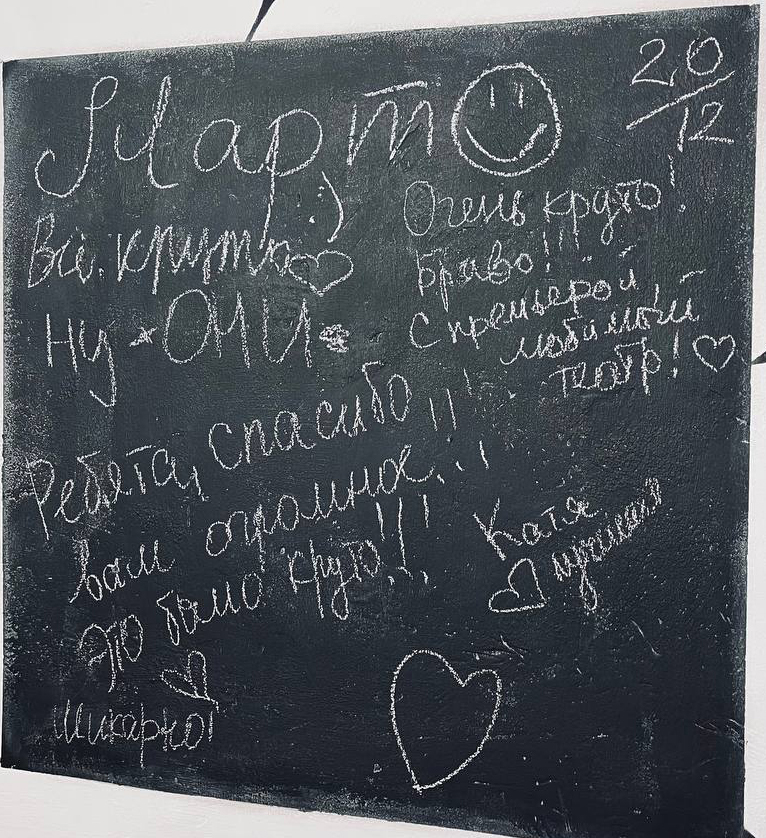 Март
20
12
Все круто
ну *ОМИ*
Очень круто!
Браво!!!
С премьерой
любимый
театр!
Ребята, спасибо
вам огромное!!!
Это было круто!!!
Катя
лучшая
Шикарно!